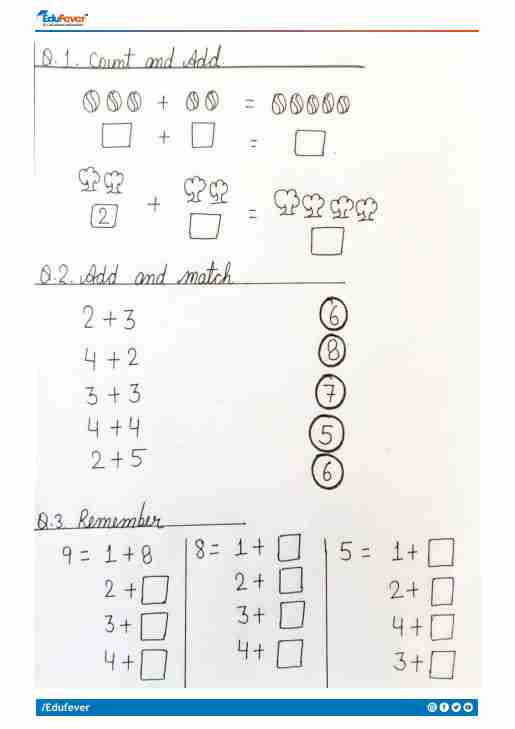 EduFever
Q.1. Count and Add
+ =
+ =
+ =
2
Q.2. Add and match
2 + 3 6
4 + 2 8
3 + 3 7
4 + 4 5
2 + 5 6
Q.3. Remember
9 = 1 + 8 8 = 1 + 5 = 1 +
2 + 2 + 2 +
3 + 3 + 4 +
4 + 4 + 3 +
/Edufever